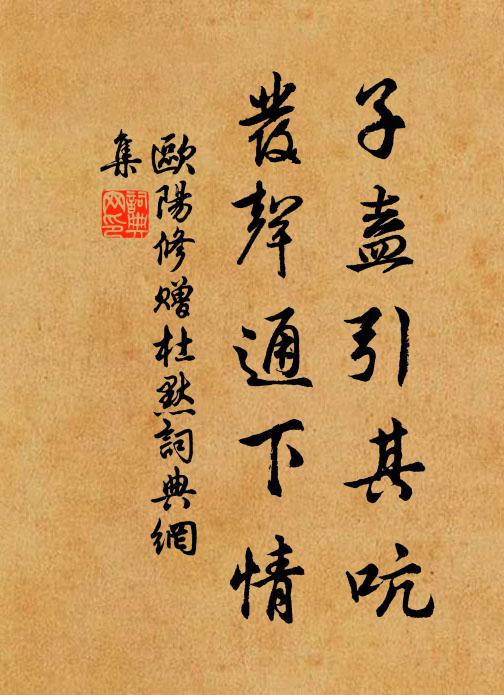 子盍引其吭
發聲通下情
歐陽修贈杜默詞典網
集
詞典
网印